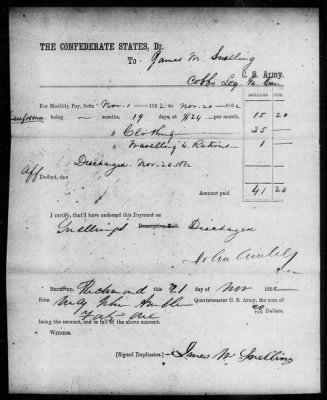 THE CONFEDERATE STATES, Dr.
To James M. Snelling
Cobbs Leg. Ga. Cav
C. S. Army.
DOLLARS CTS.
For Monthly Pay, from Nov. 1 1862 to Nov. 20 1862
being — months, 19 days, at $24 per month. 15 20
" Clothing 25 —
" Travelling & Rations 1 —
Discharged Nov. 20. 1862
Deduct, due
Amount paid 41 20
I certify, that I have endorsed this Payment on
Snelling's Descriptive Roll. Discharged
John Ambler
Received, Richmond this 21 day of Nov 1862
from Maj John Ambler Quartermaster C. S. Army, the sum of
Forty One 20/100 Dollars,
being the amount, and in full of the above account.
Witness.
(Signed Duplicates) James M Snelling